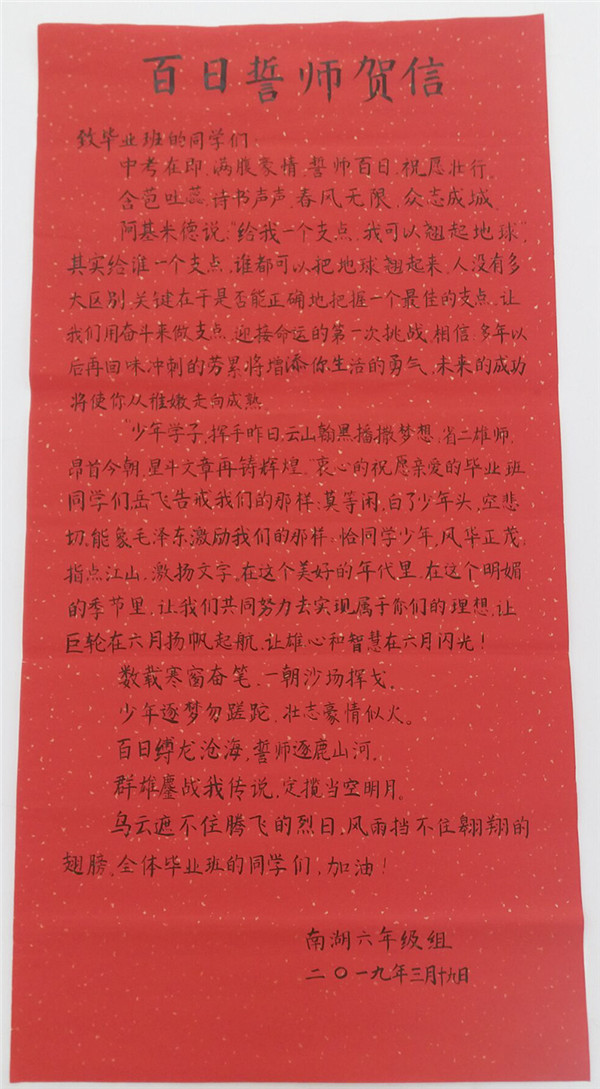 百日誓师贺信
致毕业班的同学们
中考在即,满腹豪情,誓师百日,祝愿壮行。
含苞吐蕊,诗书声声,春风无限,众志成城。
阿基米德说:“给我一个支点,我可以翘起地球”,
其实给谁一个支点,谁都可以把地球翘起来,人没有多
大区别,关键在于是否能正确地把握一个最佳的支点,让
我们用奋斗来做支点,迎接命运的第一次挑战,相信,多年以
后再回味冲刺的劳累将增添你生活的勇气,未来的成功
将使你从稚嫩走向成熟。
“少年学子,挥手昨日,云山翰墨播撒梦想,省二雄师,
昂首今朝,星斗文章再铸辉煌。”衷心的祝愿亲爱的毕业班
同学们,岳飞告戒我们的那样:莫等闲,白了少年头,空悲
切,能象毛泽东激励我们的那样:恰同学少年,风华正茂,
指点江山,激扬文字,在这个美好的年代里,在这个明媚
的季节里,让我们共同努力去实现属于你们的理想,让
巨轮在六月扬帆起航,让雄心和智慧在六月闪光!
数载寒窗奋笔,一朝沙场挥戈,
少年逐梦勿蹉跎,壮志豪情似火。
百日缚龙沧海,誓师逐鹿山河,
群雄鏖战我传说,定揽当空明月。
乌云遮不住腾飞的烈日,风雨挡不住翱翔的
翅膀,全体毕业班的同学们,加油!
南湖六年级组
二〇一九年三月十九日